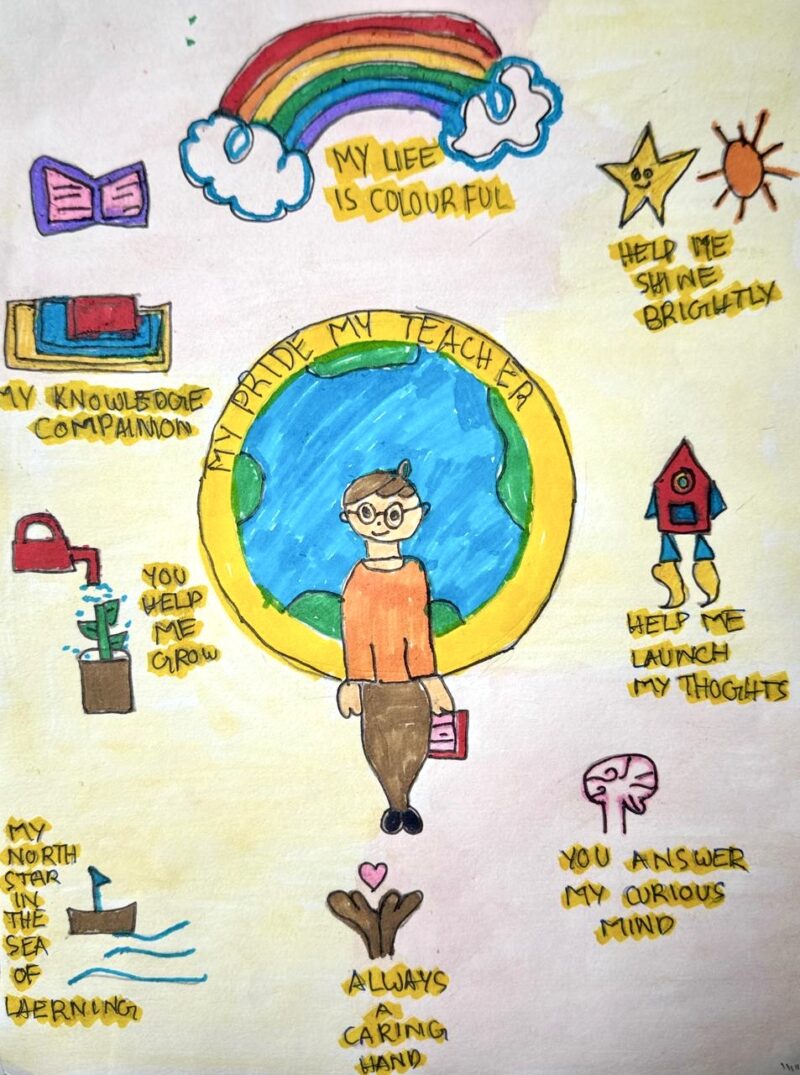 MY LIFE
IS COLOURFUL
HELP ME
SHINE
BRIGHTLY
MY PRIDE MY TEACHER
MY KNOWLEDGE
COMPAINION
YOU
HELP
ME
GROW
HELP ME
LAUNCH
MY THOGHTS
YOU ANSWER
MY CURIOUS
MIND
MY
NORTH
STAR
IN
THE
SEA
OF
LAERNING
ALLWAYS
A
CARING
HAND